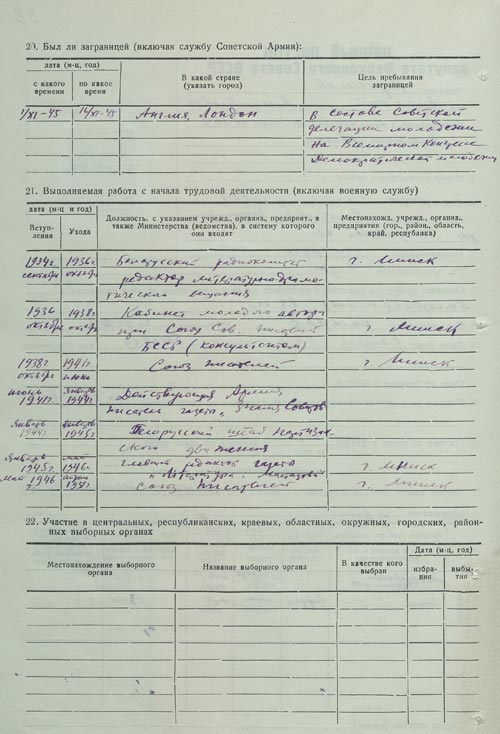 20. Был ли заграницей (включая службу Советской Армии):
дата (м-ц, год)
с какого времени
по какое время
В какой стране
(указать город)
Цель пребывания
заграницей
1/XI-45
14/XI-45
Англия, Лондон
В составе Советской
делегации молодежи
на Всемирном Конгрессе
Демократической молодежи
21. Выполняемая работа с начала трудовой деятельности (включая военную службу)
дата (м-ц и год)
Вступ-
ления
Ухода
Должность, с указанием учрежд., организ., предприят., а
также Министерства (ведомства), в систему которого
они входят
Местонахожд. учрежд., организ.,
предприятия (гор., район., область,
край, республика)
1934г. сентябрь
1936г. октябрь
Белорусский радиокомитет
г. Минск
редактор литературно-драма-
тического вещания
1936 октябрь
1938г. октябрь
Кабинет молодого автора
при Союзе Сов. писателей
г. Минск
БССР (консультантом)
1938г. октябрь
1941г. июнь
Союз писателей
г. Минск
июнь 1941г.
январь 1944г.
Действующая Армия
писатель газеты
январь 1944г.
1945г.
Белорусский штаб партизан-
ского движения
Январь 1945г.
май 1946г.
главный редактор газеты
г. Минск
май 1946
Союз писателей
г. Минск
22. Участие в центральных, республиканских, краевых, областных, окружных, городских, район-
ных выборных органах
Местонахождение выборного
органа
Название выборного органа
В качестве кого
выбран
Дата (м-ц, год)
избра-
ния
выбы-
тия